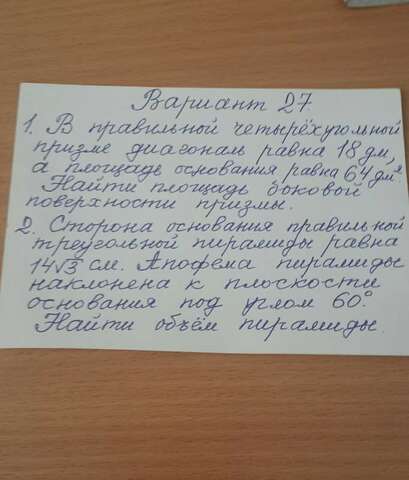 Вариант 27.
1. В правильной четырёхугольной
призме диагональ равна 18 дм,
а площадь основания равна 64 дм²
Найти площадь боковой
поверхности призмы.
2. Сторона основания правильной
треугольной пирамиды равна
14√3 см. Апофема пирамиды
наклонена к плоскости
основания под углом 60°
Найти объём пирамиды.